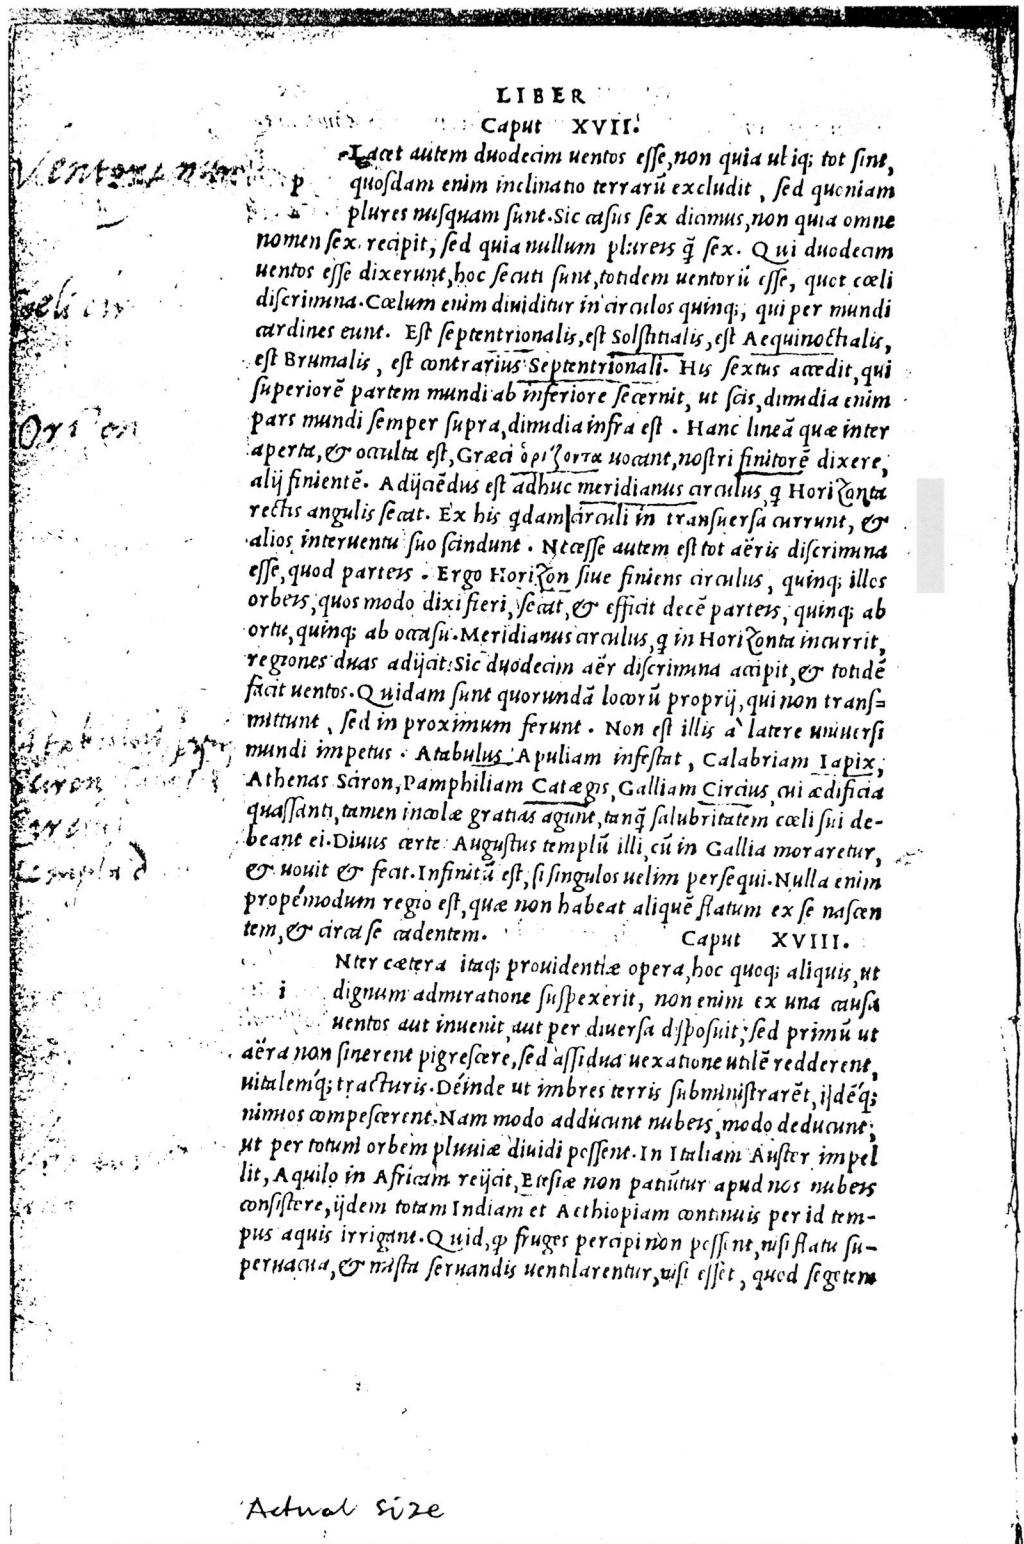 LIBER
Caput XVII.
Lacet autem duodecim uentos esse, non quia ubiq; tot sint,
p quosdam enim inclinatio terrarū excludit, sed quoniam
plures nusquam sunt. Sic casus sex dicimus, non quia omne
nomen sex recipit, sed quia nullum plureis q̄ sex. Qui duodecim
uentos esse dixerunt, hoc secuti sunt, totidem uentorū esse, quot cœli
discrimina. Cœlum enim diuiditur in circulos quinq;, qui per mundi
cardines eunt. Est septentrionalis, est Solstitialis, est Aequinoctialis,
est Brumalis, est contrarius Septentrionali. His sextus accedit, qui
superiorē partem mundi ab inferiore secernit, ut scis, dimidia enim
pars mundi semper supra, dimidia infra est. Hanc lineā quæ inter
aperta, & occulta est, Græci ὁρίζοντα uocant, nostri finitorē dixere,
alij finientē. Adijciēdus est adhuc meridianus circulus, q Horizonta
rectis angulis secat. Ex his qdam circuli in transuersa currunt, &
alios interuentu suo scindunt. Necesse autem est tot aëris discrimina
esse, quod parteis. Ergo Horizon siue finiens circulus, quinq; illos
orbeis, quos modo dixi fieri, secat, & efficit decē parteis, quinq; ab
ortu, quinq; ab occasu. Meridianus circulus, q in Horizonta incurrit,
regiones duas adijcit: Sic duodecim aër discrimina accipit, & totidē
facit uentos. Quidam sunt quorundā locorū proprij, qui non trans=
mittunt, sed in proximum ferunt. Non est illis à latere uniuersi
mundi impetus. Atabulus Apuliam infestat, Calabriam Iapix,
Athenas Sciron, Pamphiliam Catægis, Galliam Circius, cui ædificia
quassanti, tamen incolæ gratias agunt, tanq̄ salubritatem cœli sui de-
beant ei. Diuus certe Augustus templū illi, cū in Gallia moraretur,
& uouit & fecit. Infinitū est, si singulos uelim persequi. Nulla enim
propemodum regio est, quæ non habeat aliquē flatum ex se nascen
tem, & circa se cadentem. Caput XVIII.
Nter cætera itaq; prouidentiæ opera, hoc quoq; aliquis, ut
i dignum admiratione suspexerit, non enim ex una causa
uentos aut inuenit, aut per diuersa disposuit, sed primū ut
aëra non sinerent pigrescere, sed assidua uexatione utilē redderent,
uitalemq́; tracturis. Deinde ut imbres terris subministrarēt, ijdēq́;
nimios compescerent. Nam modo adducunt nubeis, modo deducunt,
ut per totum orbem pluuiæ diuidi possent. In Italiam Auster impel
lit, Aquilo in Africam reijcit, Etesiæ non patiūtur apud nos nubeis
consistere, ijdem totam Indiam et Aethiopiam continuis per id tem-
pus aquis irrigant. Quid, φ fruges percipi non possent, nisi flatu su-
peruacua, & mista seruandis uentilarentur, nisi esset, quod segetem
Orison
Actual size